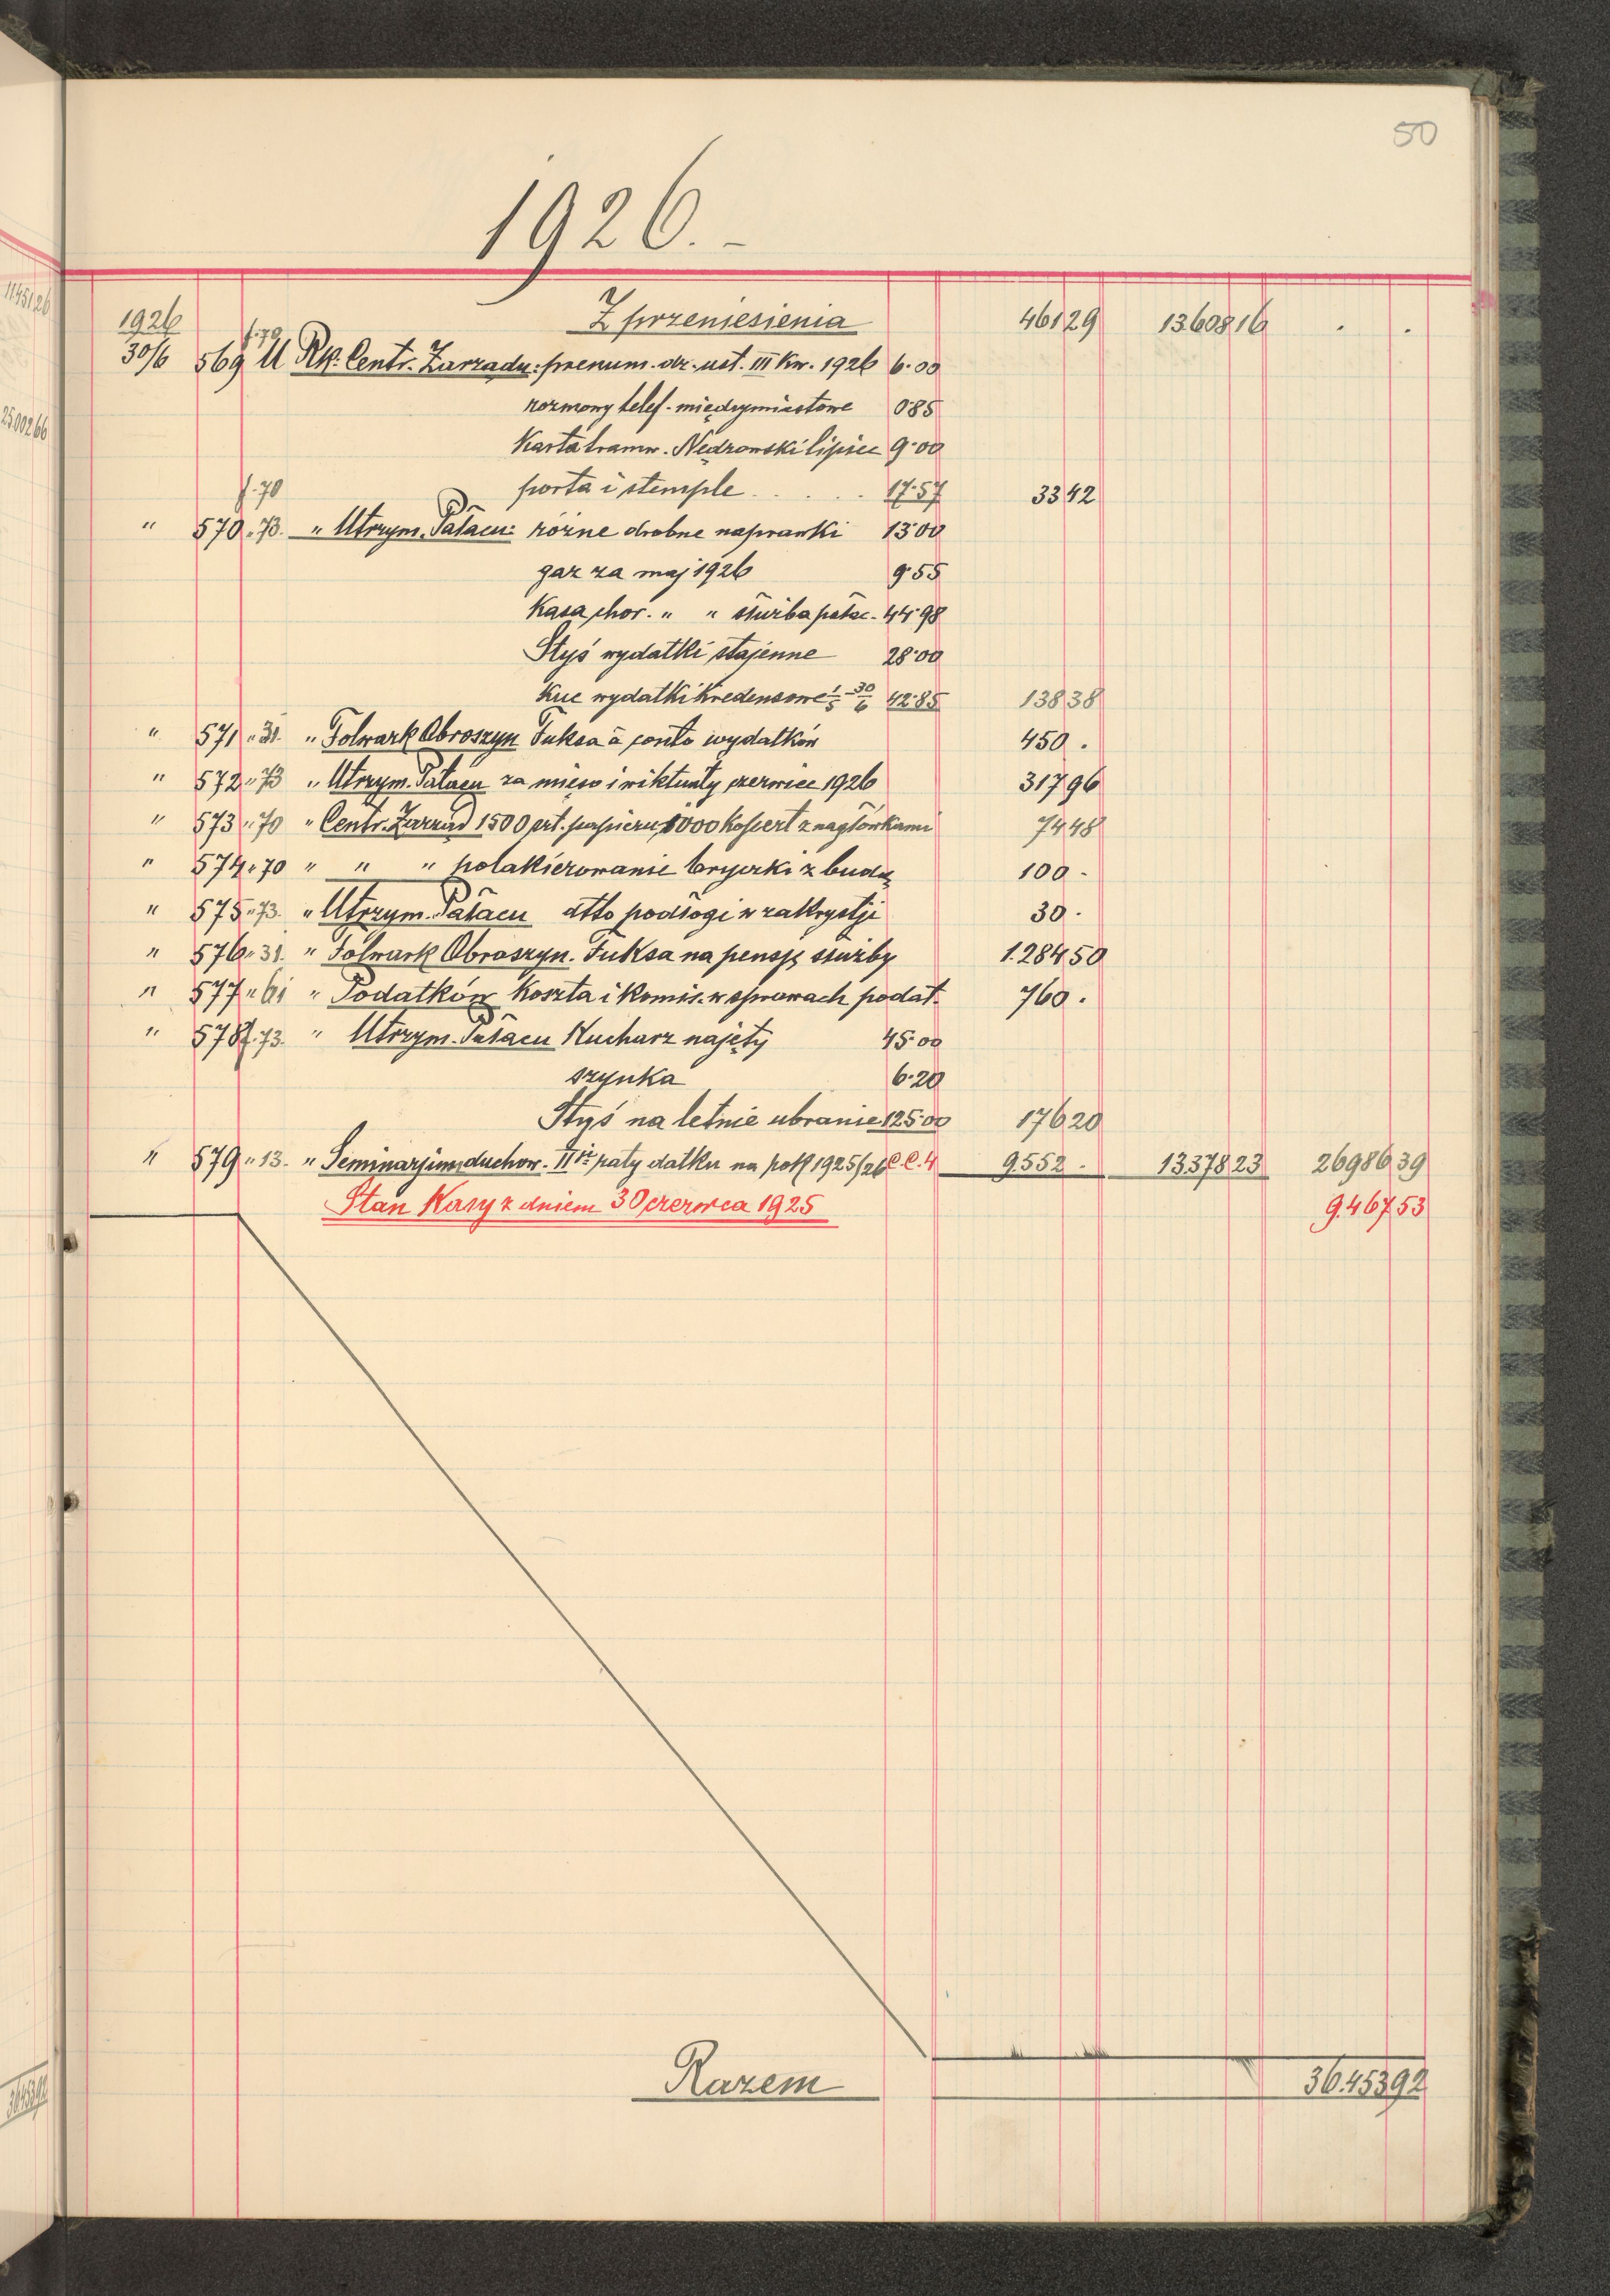 50
1926.-
1926 Z przeniesienia 461 29 13.608 16 . .
f. 70
30/6 569 U Rk. Centr. Zarządu: prenum. dz. ust. III kw. 1926 6·00
rozmowy telef. międzymiastowe 0·85
Karta tramw. Nędzowski lipiec 9·00
f. 70 porta i stemple . . . . 17·57 33 42
" 570 " 73. " Utrzym. Pałacu: różne drobne naprawki 13·00
gaz za maj 1926 9·55
Kasa chor. " " służba pałac. 44·98
Styś wydatki stajenne 28·00
Kuc wydatki kredensowe 1/5 - 30/6 42·85 138 38
" 571 " 31. " Folwark Obroszyn Fuksa à conto wydatków 450 .
" 572 " 73 " Utrzym. Pałacu za mięso i wiktuały czerwiec 1926 317 96
" 573 " 70 " Centr. Zarząd 1500 art. papieru, 1000 kopert z nagłówkami 74 48
" 574 " 70 " " " polakierowanie bryczki z budą 100 -
" 575 " 73. " Utrzym. Pałacu dtto podłogi w zakrystji 30 .
" 576 " 31. " Folwark Obroszyn. Fuksa na pensje służby 1.284 50
" 577 " 61 " Podatków koszta i komis. w sprawach podat. 760 .
" 578 f. 73. " Utrzym. Pałacu Kucharz najęty 45·00
szynka 6·20
Styś na letnie ubranie 125·00 176 20
" 579 " 13. " Seminarjum duchow. II raty datku na rok 1925/26 C.C. 4 9552 . 13.378 23 26.986 39
Stan Kasy z dniem 30 czerwca 1925 9.467 53
Razem 36.453 92
1145126
2500266
3645392